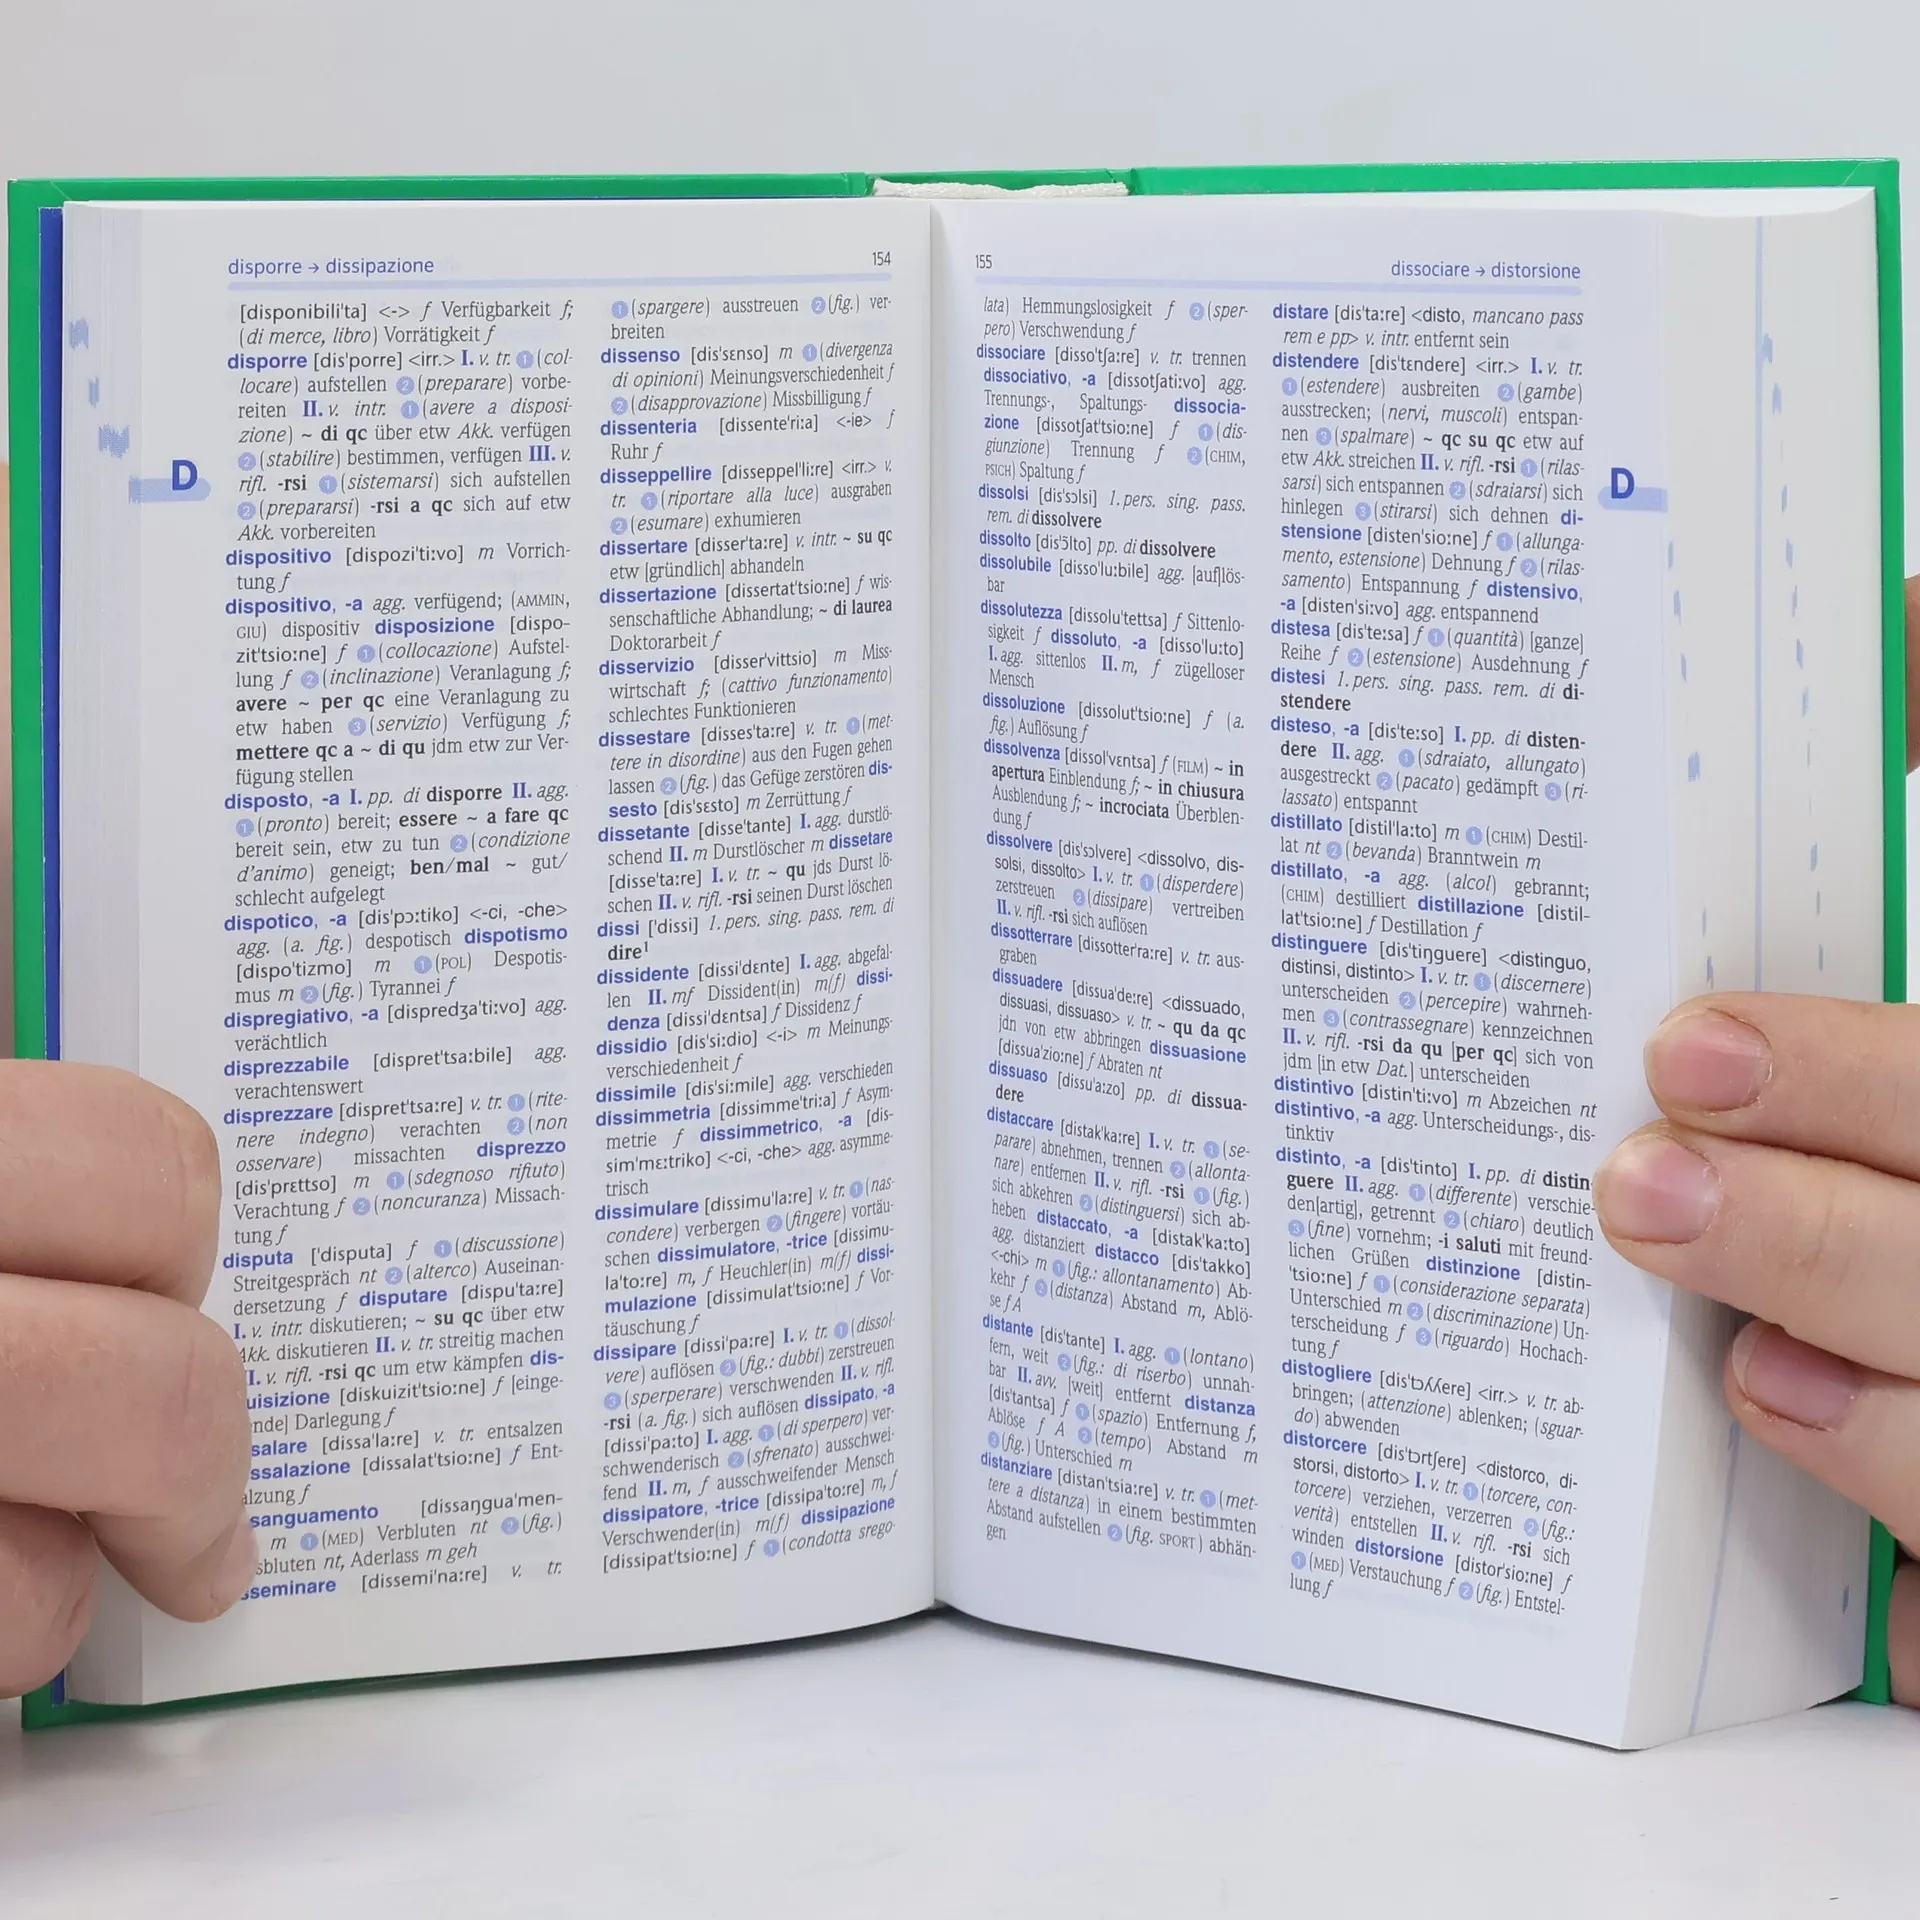 disporre → dissipazione
154
[disponibili'ta] <-> f Verfügbarkeit f;
(di merce, libro) Vorrätigkeit f
disporre [dis'porre] <irr.> I. v. tr. ① (col-
locare) aufstellen ② (preparare) vorbe-
reiten II. v. intr. ① (avere a disposi-
zione) ~ di qc über etw Akk. verfügen
② (stabilire) bestimmen, verfügen III. v.
rifl. -rsi ① (sistemarsi) sich aufstellen
② (prepararsi) -rsi a qc sich auf etw
Akk. vorbereiten
dispositivo [dispozi'ti:vo] m Vorrich-
tung f
dispositivo, -a agg. verfügend; (AMMIN,
GIU) dispositiv disposizione [dispo-
zit'tsio:ne] f ① (collocazione) Aufstel-
lung f ② (inclinazione) Veranlagung f;
avere ~ per qc eine Veranlagung zu
etw haben ③ (servizio) Verfügung f;
mettere qc a ~ di qu jdm etw zur Ver-
fügung stellen
disposto, -a I. pp. di disporre II. agg.
① (pronto) bereit; essere ~ a fare qc
bereit sein, etw zu tun ② (condizione
d'animo) geneigt; ben/mal ~ gut/
schlecht aufgelegt
dispotico, -a [dis'pɔ:tiko] <-ci, -che>
agg. (a. fig.) despotisch dispotismo
[dispo'tizmo] m ① (POL) Despotis-
mus m ② (fig.) Tyrannei f
dispregiativo, -a [dispredʒa'ti:vo] agg.
verächtlich
disprezzabile [dispret'tsa:bile] agg.
verachtenswert
disprezzare [dispret'tsa:re] v. tr. ① (rite-
nere indegno) verachten ② (non
osservare) missachten disprezzo
[dis'prɛttso] m ① (sdegnoso rifiuto)
Verachtung f ② (noncuranza) Missach-
tung f
disputa ['disputa] f ① (discussione)
Streitgespräch nt ② (alterco) Auseinan-
dersetzung f disputare [dispu'ta:re]
I. v. intr. diskutieren; ~ su qc über etw
Akk. diskutieren II. v. tr. streitig machen
I. v. rifl. -rsi qc um etw kämpfen dis-
uisizione [diskuizit'tsio:ne] f [einge-
nde] Darlegung f
salare [dissa'la:re] v. tr. entsalzen
ssalazione [dissalat'tsio:ne] f Ent-
alzung f
sanguamento [dissaŋgua'men-
m ① (MED) Verbluten nt ② (fig.)
sbluten nt, Aderlass m geh
sseminare [dissemi'na:re] v. tr.
① (spargere) ausstreuen ② (fig.) ver-
breiten
dissenso [dis'sɛnso] m ① (divergenza
di opinioni) Meinungsverschiedenheit f
② (disapprovazione) Missbilligung f
dissenteria [dissente'ri:a] <-ie> f
Ruhr f
disseppellire [disseppel'li:re] <irr.> v.
tr. ① (riportare alla luce) ausgraben
② (esumare) exhumieren
dissertare [disser'ta:re] v. intr. ~ su qc
etw [gründlich] abhandeln
dissertazione [dissertat'tsio:ne] f wis-
senschaftliche Abhandlung; ~ di laurea
Doktorarbeit f
disservizio [disser'vittsio] m Miss-
wirtschaft f; (cattivo funzionamento)
schlechtes Funktionieren
dissestare [disses'ta:re] v. tr. ① (met-
tere in disordine) aus den Fugen gehen
lassen ② (fig.) das Gefüge zerstören dis-
sesto [dis'sɛsto] m Zerrüttung f
dissetante [disse'tante] I. agg. durstlö-
schend II. m Durstlöscher m dissetare
[disse'ta:re] I. v. tr. ~ qu jds Durst lö-
schen II. v. rifl. -rsi seinen Durst löschen
dissi ['dissi] 1. pers. sing. pass. rem. di
dire¹
dissidente [dissi'dɛnte] I. agg. abgefal-
len II. mf Dissident(in) m(f) dissi-
denza [dissi'dɛntsa] f Dissidenz f
dissidio [dis'si:dio] <-i> m Meinungs-
verschiedenheit f
dissimile [dis'si:mile] agg. verschieden
dissimmetria [dissimme'tri:a] f Asym-
metrie f dissimmetrico, -a [dis-
sim'mɛ:triko] <-ci, -che> agg. asymme-
trisch
dissimulare [dissimu'la:re] v. tr. ① (nas-
condere) verbergen ② (fingere) vortäu-
schen dissimulatore, -trice [dissimu-
la'to:re] m, f Heuchler(in) m(f) dissi-
mulazione [dissimulat'tsio:ne] f Vor-
täuschung f
dissipare [dissi'pa:re] I. v. tr. ① (dissol-
vere) auflösen ② (fig.: dubbi) zerstreuen
③ (sperperare) verschwenden II. v. rifl.
-rsi (a. fig.) sich auflösen dissipato, -a
[dissi'pa:to] I. agg. ① (di sperpero) ver-
schwenderisch ② (sfrenato) ausschwei-
fend II. m, f ausschweifender Mensch
dissipatore, -trice [dissipa'to:re] m, f
Verschwender(in) m(f) dissipazione
[dissipat'tsio:ne] f ① (condotta srego-
155
dissociare → distorsione
lata) Hemmungslosigkeit f ② (sper-
pero) Verschwendung f
dissociare [disso'tʃa:re] v. tr. trennen
dissociativo, -a [dissotʃati:vo] agg.
Trennungs-, Spaltungs- dissocia-
zione [dissotʃat'tsio:ne] f ① (dis-
giunzione) Trennung f ② (CHIM,
PSICH) Spaltung f
dissolsi [dis'sɔlsi] 1. pers. sing. pass.
rem. di dissolvere
dissolto [dis'ɔ̃lto] pp. di dissolvere
dissolubile [disso'lu:bile] agg. [auf]lös-
bar
dissolutezza [dissolu'tettsa] f Sittenlo-
sigkeit f dissoluto, -a [disso'lu:to]
I. agg. sittenlos II. m, f zügelloser
Mensch
dissoluzione [dissolut'tsio:ne] f (a.
fig.) Auflösung f
dissolvenza [dissol'vɛntsa] f (FILM) ~ in
apertura Einblendung f; ~ in chiusura
Ausblendung f; ~ incrociata Überblen-
dung f
dissolvere [dis'sɔlvere] <dissolvo, dis-
solsi, dissolto> I. v. tr. ① (disperdere)
zerstreuen ② (dissipare) vertreiben
II. v. rifl. -rsi sich auflösen
dissotterrare [dissotter'ra:re] v. tr. aus-
graben
dissuadere [dissua'de:re] <dissuado,
dissuasi, dissuaso> v. tr. ~ qu da qc
jdn von etw abbringen dissuasione
[dissua'zio:ne] f Abraten nt
dissuaso [dissu'a:zo] pp. di dissua-
dere
distaccare [distak'ka:re] I. v. tr. ① (se-
parare) abnehmen, trennen ② (allonta-
nare) entfernen II. v. rifl. -rsi ① (fig.)
sich abkehren ② (distinguersi) sich ab-
heben distaccato, -a [distak'ka:to]
agg. distanziert distacco [dis'takko]
<-chi> m ① (fig.: allontanamento) Ab-
kehr f ② (distanza) Abstand m, Ablö-
se f A
distante [dis'tante] I. agg. ① (lontano)
fern, weit ② (fig.: di riserbo) unnah-
bar II. avv. [weit] entfernt distanza
[dis'tantsa] f ① (spazio) Entfernung f,
Ablöse f A ② (tempo) Abstand m
③ (fig.) Unterschied m
distanziare [distan'tsia:re] v. tr. ① (met-
tere a distanza) in einem bestimmten
Abstand aufstellen ② (fig. SPORT) abhän-
gen
distare [dis'ta:re] <disto, mancano pass
rem e pp> v. intr. entfernt sein
distendere [dis'tɛndere] <irr.> I. v. tr.
① (estendere) ausbreiten ② (gambe)
ausstrecken; (nervi, muscoli) entspan-
nen ③ (spalmare) ~ qc su qc etw auf
etw Akk. streichen II. v. rifl. -rsi ① (rilas-
sarsi) sich entspannen ② (sdraiarsi) sich
hinlegen ③ (stirarsi) sich dehnen di-
stensione [disten'sio:ne] f ① (allunga-
mento, estensione) Dehnung f ② (rilas-
samento) Entspannung f distensivo,
-a [disten'si:vo] agg. entspannend
distesa [dis'te:sa] f ① (quantità) [ganze]
Reihe f ② (estensione) Ausdehnung f
distesi 1. pers. sing. pass. rem. di di-
stendere
disteso, -a [dis'te:so] I. pp. di disten-
dere II. agg. ① (sdraiato, allungato)
ausgestreckt ② (pacato) gedämpft ③ (ri-
lassato) entspannt
distillato [distil'la:to] m ① (CHIM) Destil-
lat nt ② (bevanda) Branntwein m
distillato, -a agg. (alcol) gebrannt;
(CHIM) destilliert distillazione [distil-
lat'tsio:ne] f Destillation f
distinguere [dis'tiŋguere] <distinguo,
distinsi, distinto> I. v. tr. ① (discernere)
unterscheiden ② (percepire) wahrneh-
men ③ (contrassegnare) kennzeichnen
II. v. rifl. -rsi da qu [per qc] sich von
jdm [in etw Dat.] unterscheiden
distintivo [distin'ti:vo] m Abzeichen nt
distintivo, -a agg. Unterscheidungs-, dis-
tinktiv
distinto, -a [dis'tinto] I. pp. di distin
guere II. agg. ① (differente) verschie-
den[artig], getrennt ② (chiaro) deutlich
③ (fine) vornehm; -i saluti mit freund-
lichen Grüßen distinzione [distin-
'tsio:ne] f ① (considerazione separata)
Unterschied m ② (discriminazione) Un-
terscheidung f ③ (riguardo) Hochach-
tung f
distogliere [dis'tɔʎʎere] <irr.> v. tr. ab-
bringen; (attenzione) ablenken; (sguar-
do) abwenden
distorcere [dis'tɔrtʃere] <distorco, di-
storsi, distorto> I. v. tr. ① (torcere, con-
torcere) verziehen, verzerren ② (fig.:
verità) entstellen II. v. rifl. -rsi sich
winden distorsione [distor'sio:ne] f
① (MED) Verstauchung f ② (fig.) Entstel-
lung f
D
D